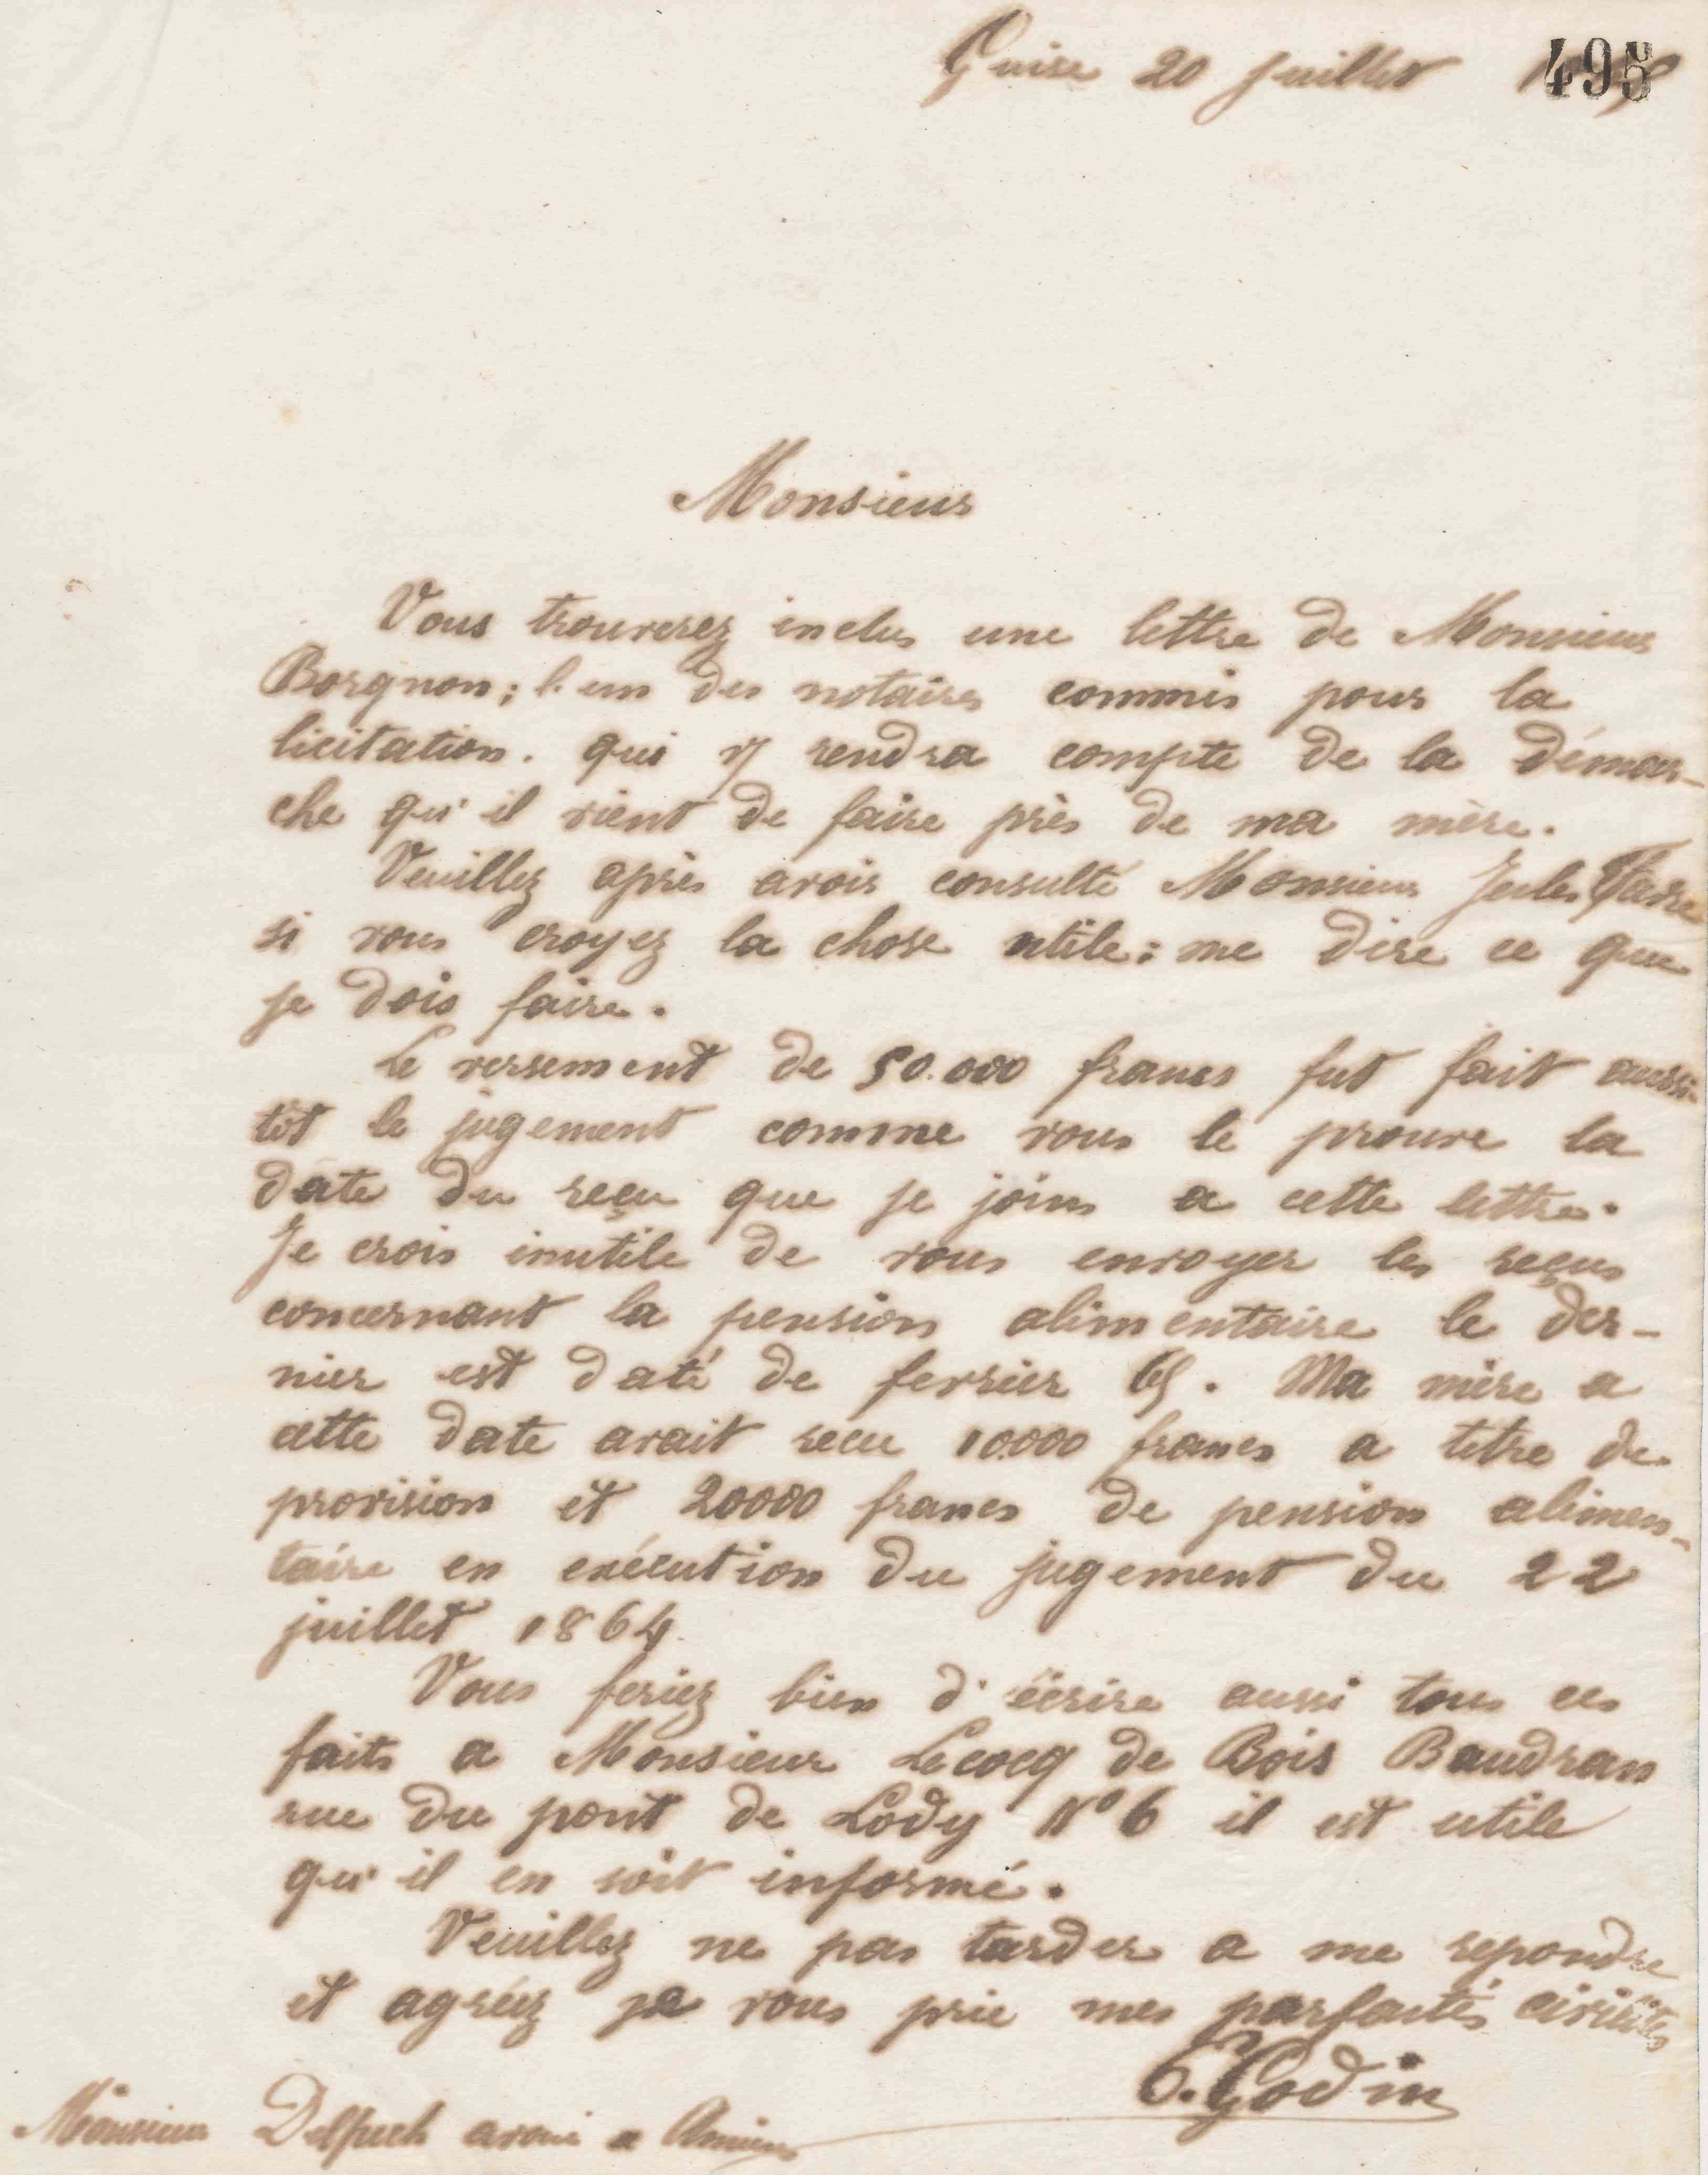 Guise 20 juillet
495
Monsieur
Vous trouverez inclus une lettre de Monsieur
Borgnon; l'un des notaires commis pour la
licitation. qui y rendra compte de la démar-
che qu'il vient de faire près de ma mère.
Veuillez après avoir consulté Monsieur Jules Favre
si vous croyez la chose utile; me dire ce que
je dois faire.
Le versement de 50.000 francs fut fait aussi-
tôt le jugement comme vous le prouve la
date du reçu que je joins a cette lettre.
Je crois inutile de vous envoyer les reçus
concernant la pension alimentaire le der-
nier est daté de fevrier 65. Ma mère a
cette date avait recu 10000 francs a titre de
provision et 20000 francs de pension alimen-
taire en exécution du jugement du 22
juillet 1864.
Vous feriez bien d'écrire aussi tous ces
faits a Monsieur Lecocq de Bois Baudran
rue du pont de Lody N° 6 il est utile
qu'il en soit informé.
Veuillez ne pas tarder a me repondre
et agréez je vous prie mes parfaites civilités
Godin
Monsieur Delpech avoué a Amiens